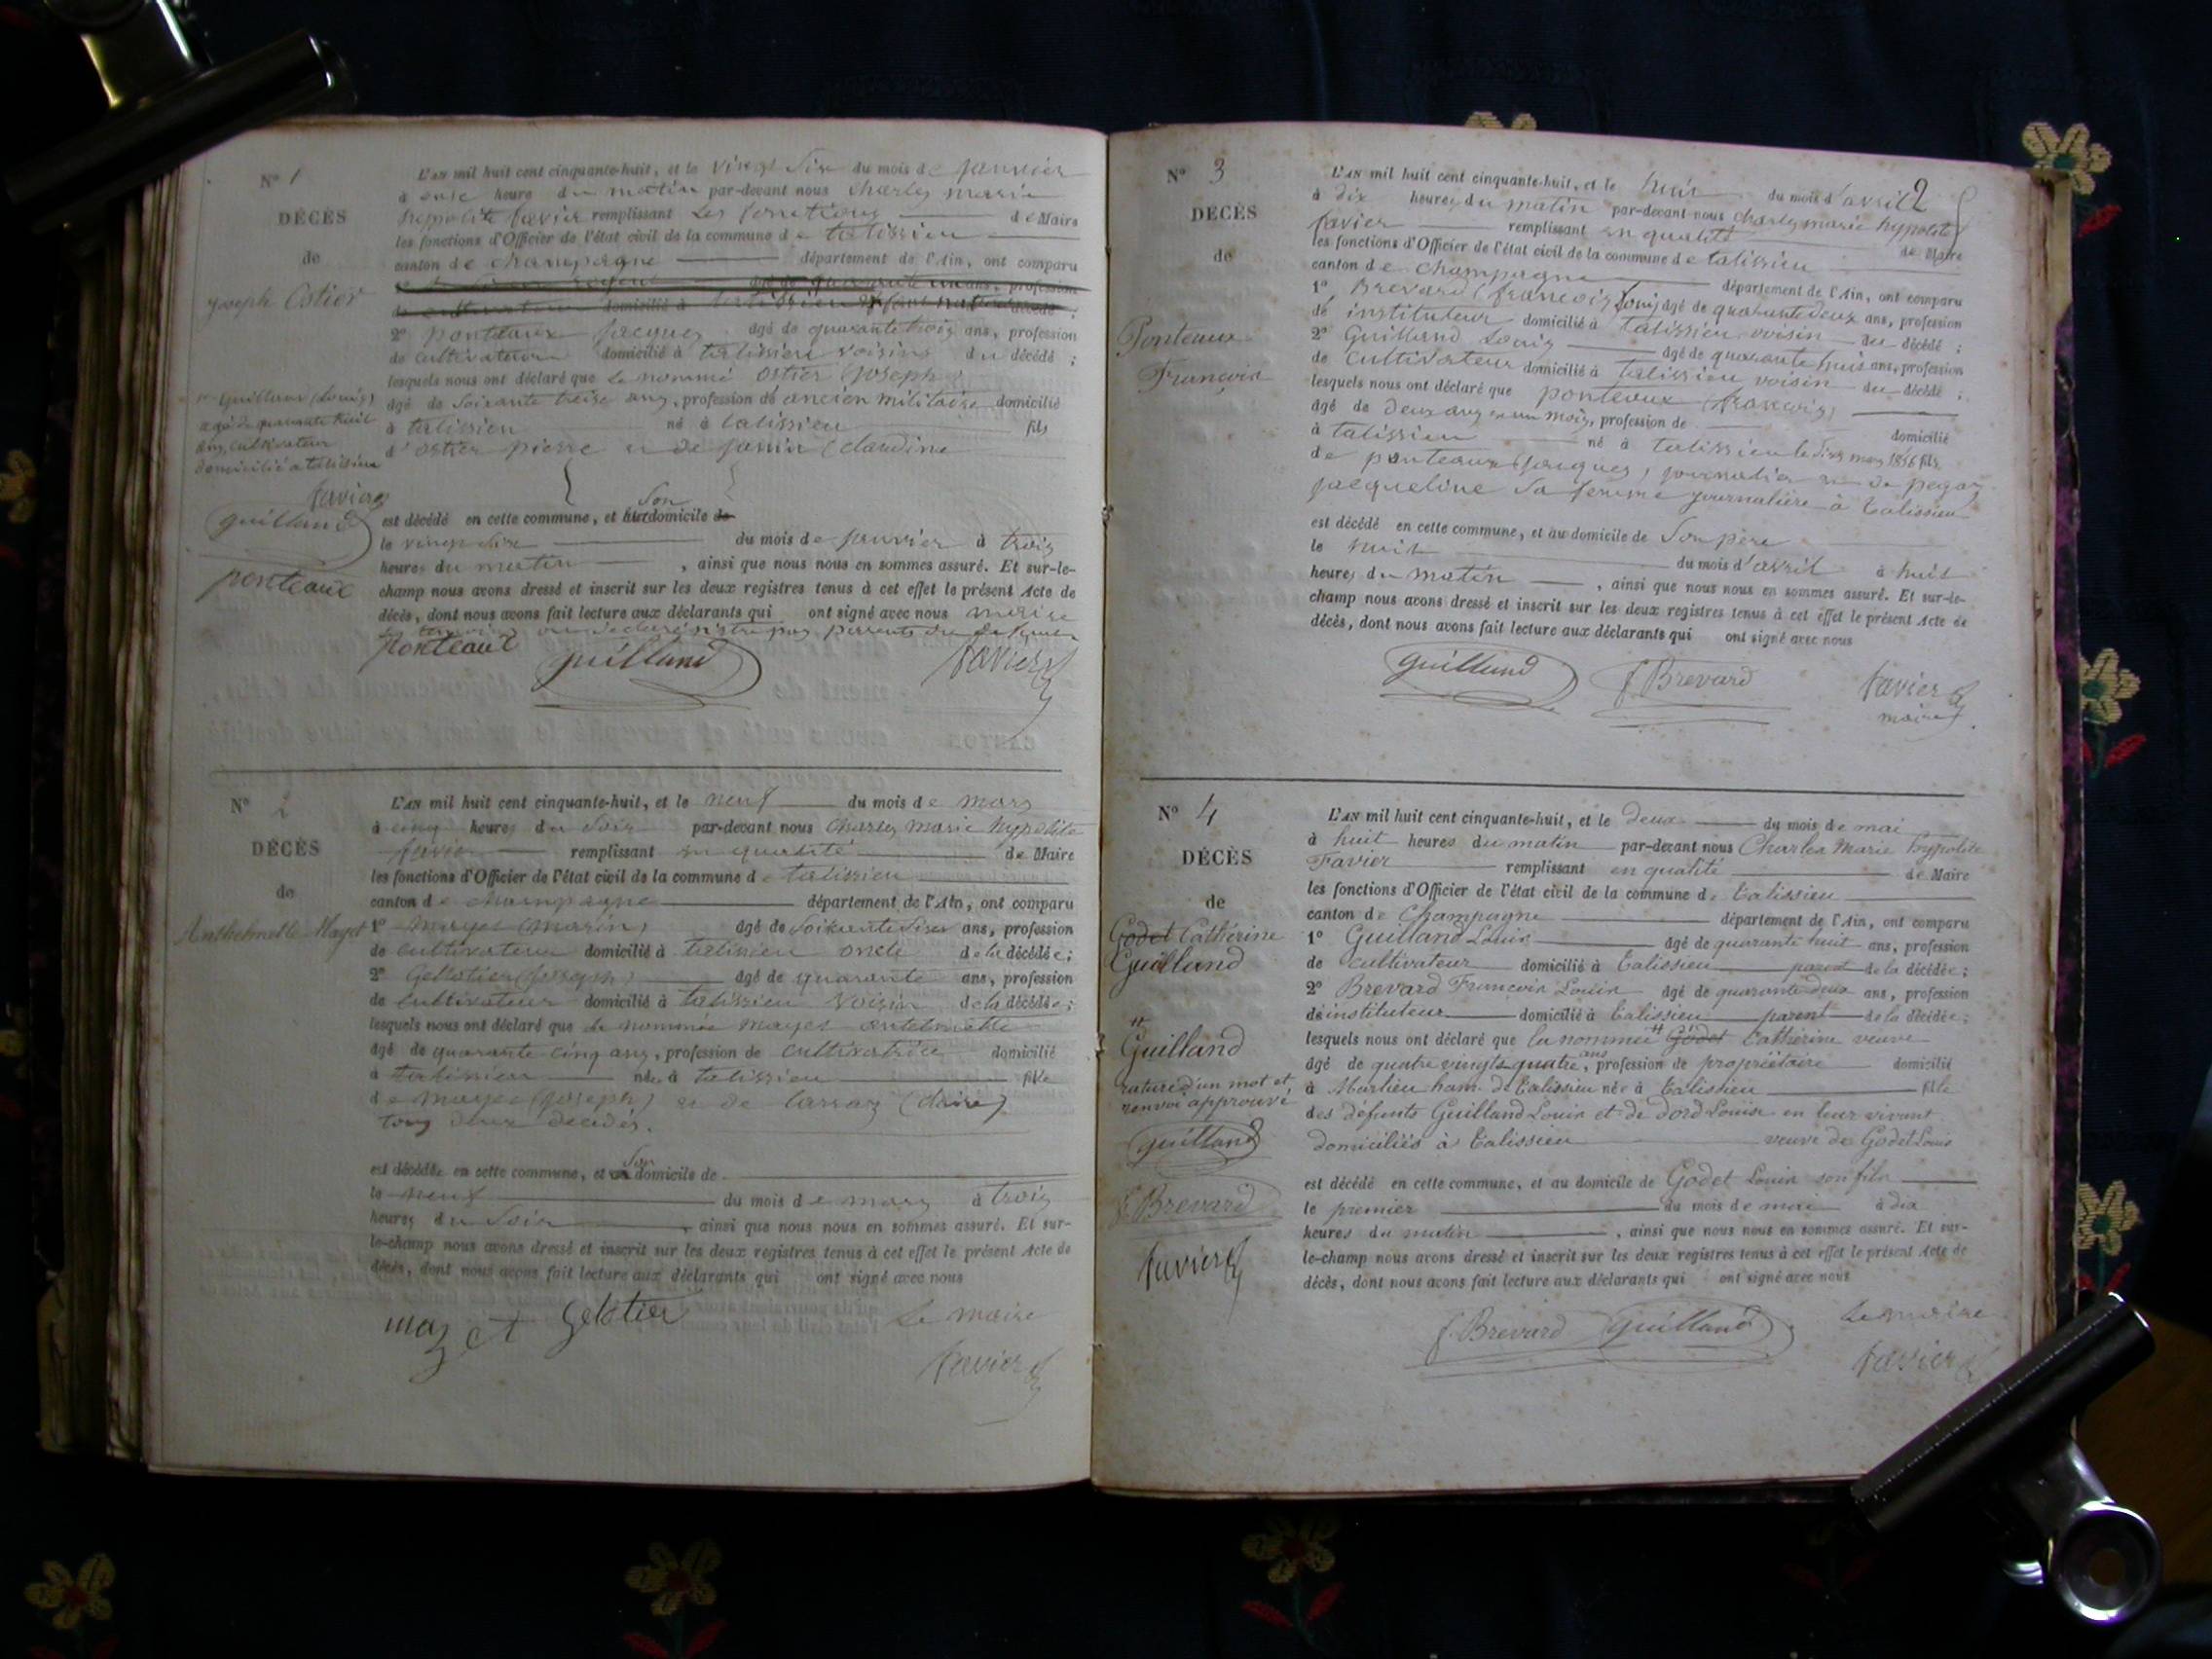 N° 1
DÉCÈS
de
joseph Ostier
L'AN mil huit cent cinquante-huit, et le vingt six du mois de janvier
à onze heure du matin par-devant nous charles marie
hippolite favier remplissant les fonctions de Maire
les fonctions d'Officier de l'état civil de la commune de talissieu
canton de champagne département de l'Ain, ont comparu
âgé de quarante un ans, profession
domicilié à décédé ;
2° ponteaux jacques âgé de quarante trois ans, profession
de cultivateur domicilié à talissieu voisins du décédé ;
lesquels nous ont déclaré que le nommé ostier (joseph)
âgé de soixante treize ans, profession de ancien militaire domicilié
à talissieu né à talissieu fils
d'ostier pierre et de janin (claudine
est décédé en cette commune, et son domicile de
le vingt six du mois de janvier à trois
heures du matin, ainsi que nous nous en sommes assuré. Et sur-le-
champ nous avons dressé et inscrit sur les deux registres tenus à cet effet le présent Acte de
décès, dont nous avons fait lecture aux déclarants qui ont signé avec nous maire
ponteaux guilland favier
1° Guilland (Louis)
agé de quarante huit
ans, cultivateur
domicilié a talissieu
favier
guilland
ponteaux
N° 2
DÉCÈS
de
Anthelmette Mayet
L'AN mil huit cent cinquante-huit, et le neuf du mois de mars
à cinq heures du soir par-devant nous Charles marie hypolite
favier remplissant en qualité de Maire
les fonctions d'Officier de l'état civil de la commune de talissieu
canton de champagne département de l'Ain, ont comparu
1° mayet (marin) âgé de soixante six ans, profession
de cultivateur domicilié à talissieu oncle de la décédée ;
2° Gelotier (joseph) âgé de quarante ans, profession
de cultivateur domicilié à talissieu voisin de la décédée ;
lesquels nous ont déclaré que la nommée mayet antelmette
âgé de quarante cinq ans, profession de cultivatrice domicilié
à talissieu née à talissieu fille
de mayet (joseph) et de (claire)
tous deux décédés.
est décédée en cette commune, et son domicile de
le neuf du mois de mars à trois
heures du soir, ainsi que nous nous en sommes assuré. Et sur-
le-champ nous avons dressé et inscrit sur les deux registres tenus à cet effet le présent Acte de
décès, dont nous avons fait lecture aux déclarants qui ont signé avec nous
Le maire
favier
N° 3
DÉCÈS
de
Ponteaux
François
2
L'AN mil huit cent cinquante-huit, et le huit du mois d'avril
à dix heures du matin par-devant nous charles marie hypolite
favier remplissant en qualité de Maire
les fonctions d'Officier de l'état civil de la commune de talissieu
canton de champagne département de l'Ain, ont comparu
1° Brevard (francois louis) âgé de quarante deux ans, profession
de instituteur domicilié à talissieu voisin du décédé ;
2° Guilland Louis âgé de quarante huit ans, profession
de cultivateur domicilié à talissieu voisin du décédé ;
lesquels nous ont déclaré que ponteaux (francois)
âgé de deux ans et un mois, profession de domicilié
à talissieu né à talissieu le six mars 1856 fils
de ponteaux (jacques) journalier et de
jacqueline sa femme journalière à talissieu
est décédé en cette commune, et au domicile de son père
le huit du mois d'avril à huit
heures du matin, ainsi que nous nous en sommes assuré. Et sur-le-
champ nous avons dressé et inscrit sur les deux registres tenus à cet effet le présent Acte de
décès, dont nous avons fait lecture aux déclarants qui ont signé avec nous
guilland f. Brevard favier
maire
N° 4
DÉCÈS
de
Godet Catherine
Guilland
Guilland
rature d'un mot et
renvoi approuvé
guilland
f. Brevard
favier
L'AN mil huit cent cinquante-huit, et le deux du mois de mai
à huit heures du matin par-devant nous Charles Marie hyppolite
Favier remplissant en qualité de Maire
les fonctions d'Officier de l'état civil de la commune de Talissieu
canton de Champagne département de l'Ain, ont comparu
1° Guilland Louis âgé de quarante huit ans, profession
de cultivateur domicilié à Talissieu parent de la décédée ;
2° Brevard François Louis âgé de quarante deux ans, profession
de instituteur domicilié à Talissieu parent de la décédée ;
lesquels nous ont déclaré que la nommée Godet Catherine veuve
âgé de quatre vingts quatre ans, profession de propriétaire domicilié
à Marlieu ham. de Talissieu née à Talissieu fille
des défunts Guilland Louis et de Dord Louise en leur vivant
domiciliés à Talissieu veuve de Godet Louis
est décédé en cette commune, et au domicile de Godet Louis son fils
le premier du mois de mai à dix
heures du matin, ainsi que nous nous en sommes assuré. Et sur-
le-champ nous avons dressé et inscrit sur les deux registres tenus à cet effet le présent Acte de
décès, dont nous avons fait lecture aux déclarants qui ont signé avec nous
f. Brevard guilland Le maire
favier